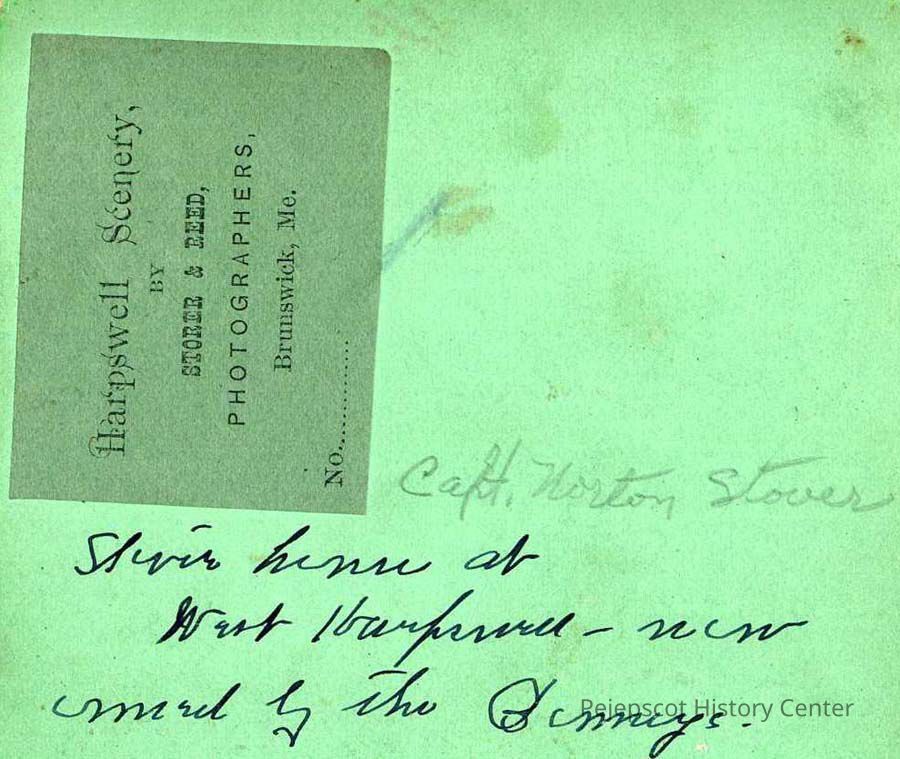 Harpswell Scenery,
BY
STORER & REED,
PHOTOGRAPHERS,
Brunswick, Me.
No..............
Capt. Norton Stover
house at
West Harpswell – now
owned by the
Pejepscot History Center